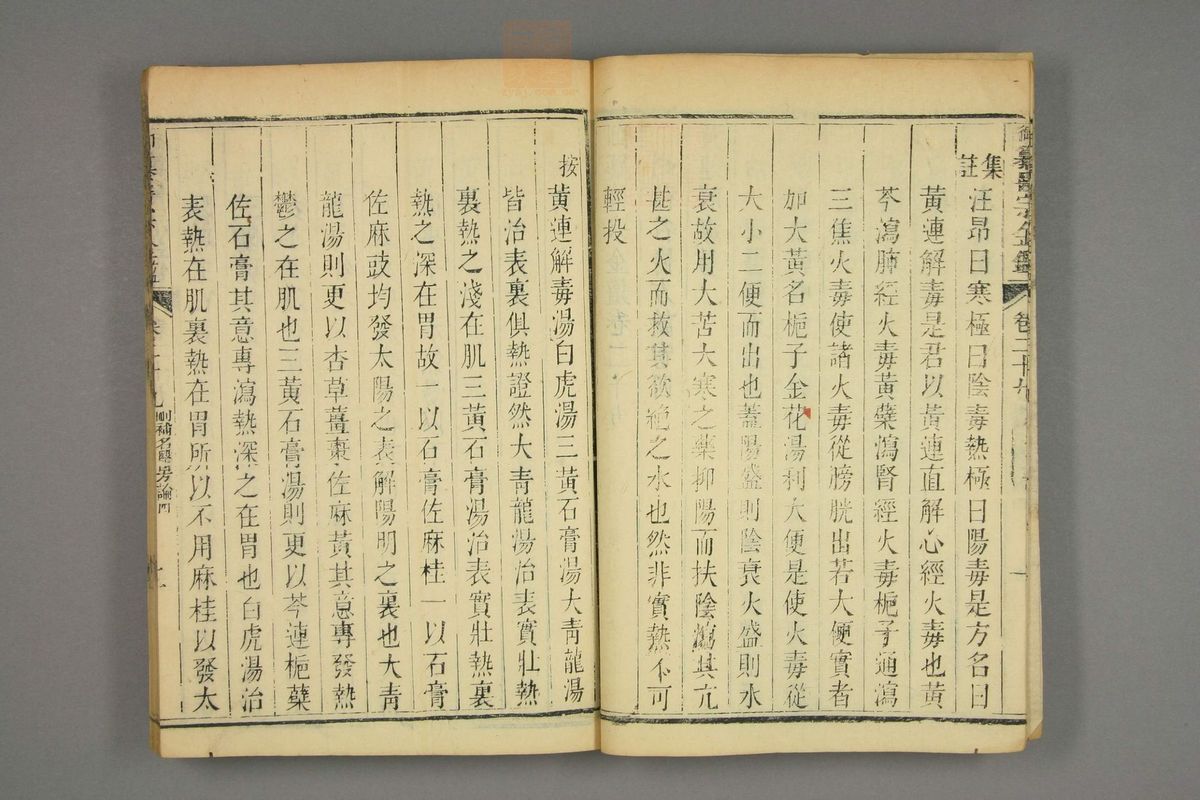 御纂醫宗金鑑
卷二十九
集註
汪昂曰寒極曰陰毒熱極曰陽毒是方名曰
黃連解毒是君以黃連直解心經火毒也黃
芩瀉肺經火毒黃蘗瀉腎經火毒梔子通瀉
三焦火毒使諸火毒從膀胱出若大便實者
加大黃名梔子金花湯利大便是使火毒從
大小二便而出也蓋陽盛則陰衰火盛則水
衰故用大苦大寒之藥抑陽而扶陰瀉其亢
甚之火而救其欲絕之水也然非實熱不可
輕投
按黃連解毒湯白虎湯三黃石膏湯大青龍湯
皆治表裏俱熱證然大青龍湯治表實壯熱
裏熱之淺在肌三黃石膏湯治表實壯熱裏
熱之深在胃故一以石膏佐麻桂一以石膏
佐麻豉均發太陽之表解陽明之裏也大青
龍湯則更以杏草薑棗佐麻黃其意專發熱
鬱之在肌也三黃石膏湯則更以芩連梔蘗
佐石膏其意專瀉熱深之在胃也白虎湯治
表熱在肌裏熱在胃所以不用麻桂以發太
刪補名醫方論四